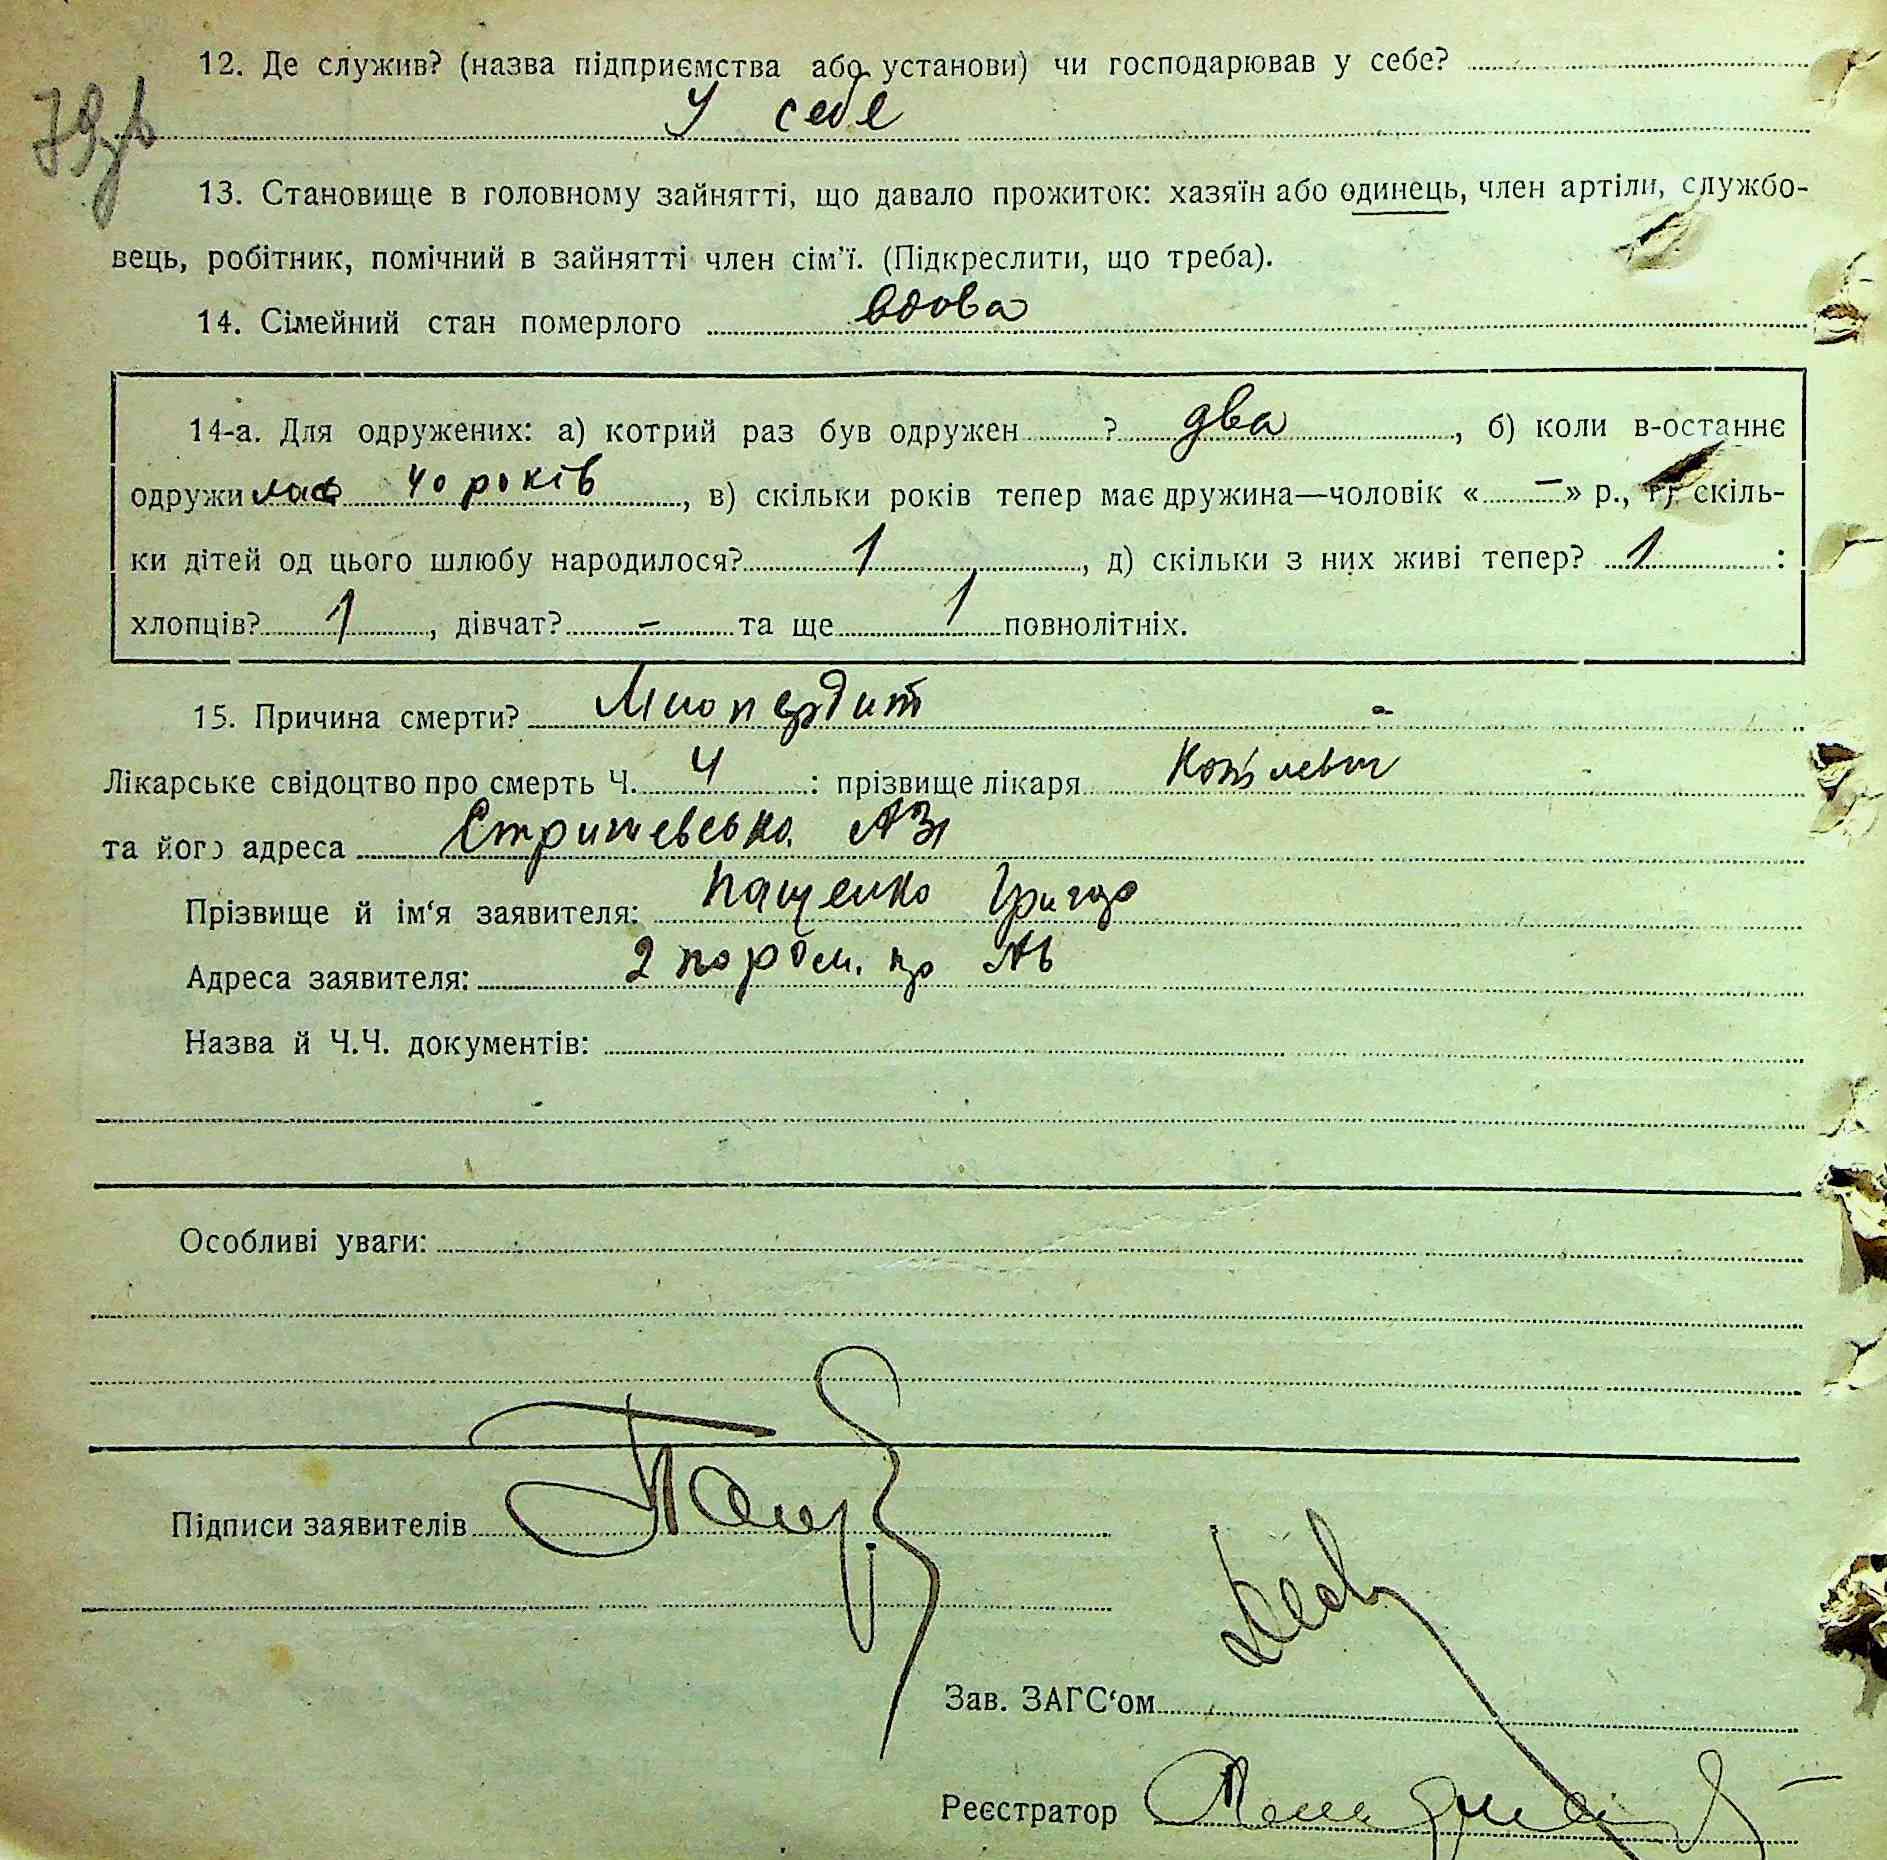 12. Де служив? (назва підприємства або установи) чи господарював у себе?
У себе
13. Становище в головному зайнятті, що давало прожиток: хазяїн або одинець, член артіли, службо-
вець, робітник, помічний в зайнятті член сім'ї. (Підкреслити, що треба).
14. Сімейний стан померлого вдова
14-а. Для одружених: а) котрий раз був одружен ? два , б) коли в-останнє
одружилась 40 років , в) скільки років тепер має дружина—чоловік « – » р., г) скіль-
ки дітей од цього шлюбу народилося? 1 , д) скільки з них живі тепер? 1 :
хлопців? 1 , дівчат? – та ще 1 повнолітніх.
15. Причина смерти? Миокардит
Лікарське свідоцтво про смерть Ч. 4 : прізвище лікаря
та його адреса
Прізвище й ім'я заявителя: Пащенко
Адреса заявителя: 2
Назва й Ч.Ч. документів:
Особливі уваги:
Підписи заявителів
Зав. ЗАГС'ом
Реєстратор